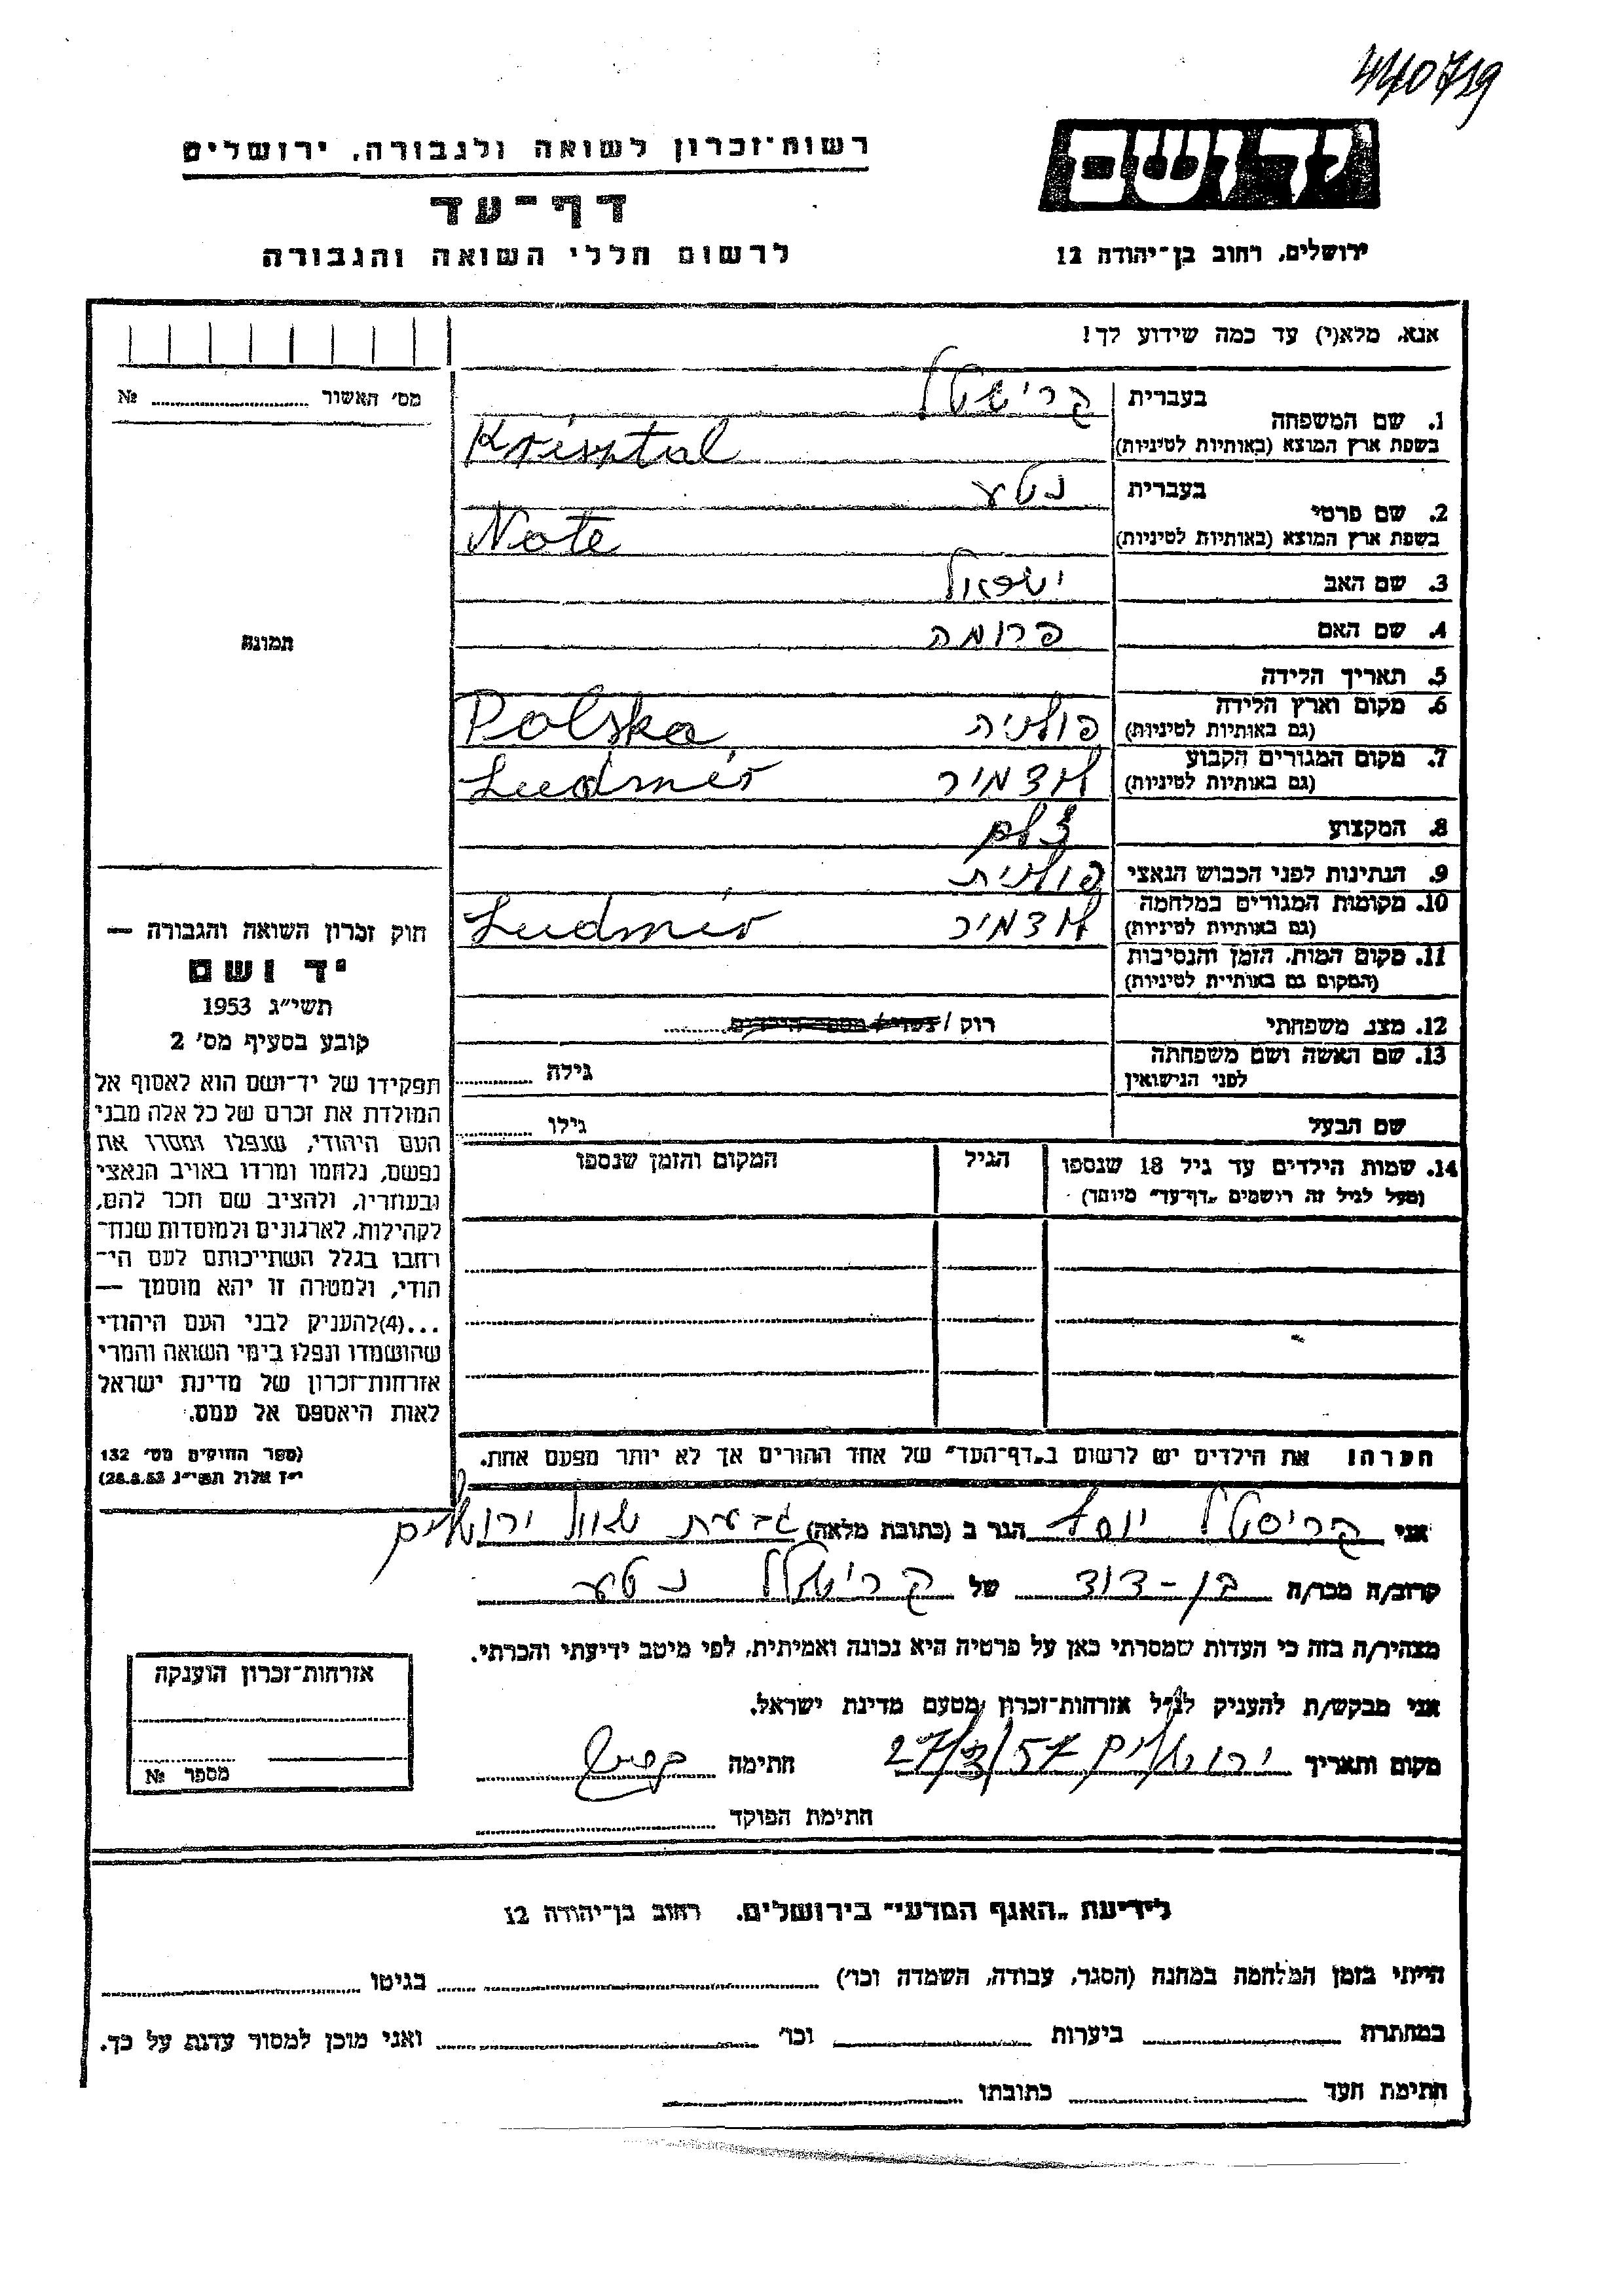 440719
רשות־זכרון לשואה ולגבורה, ירושלים
יד ושם
דף־עד
לרשום חללי השואה והגבורה
ירושלים, רחוב בן־יהודה 12
אנא, מלא(י) עד כמה שידוע לך!
מס' האשור № 
1. שם המשפחה בעברית קרישטל
בשפת ארץ המוצא (באותיות לטיניות) Krisztal
2. שם פרטי בעברית נטע
בשפת ארץ המוצא (באותיות לטיניות) Note
3. שם האב ישראל
4. שם האם פרומה
תמונה
5. תאריך הלידה
6. מקום וארץ הלידה (גם באותיות לטיניות) פולניה Polska
7. מקום המגורים הקבוע (גם באותיות לטיניות) לודמיר Ludmir
8. המקצוע צלם
9. הנתינות לפני הכבוש הנאצי פולנית
10. מקומות המגורים במלחמה (גם באותיות לטיניות) לודמיר Ludmir
11. מקום המות, הזמן והנסיבות (המקום גם באותיות לטיניות)
12. מצב משפחתי רוק / נשוי / מספר הילדים
13. שם האשה ושם משפחתה לפני הנישואין גילה
שם הבעל גילו
14. שמות הילדים עד גיל 18 שנספו (מעל לגיל זה רושמים „דף־עד" מיוחד) הגיל המקום והזמן שנספו
חוק זכרון השואה והגבורה —
יד ושם
תשי"ג 1953
קובע בסעיף מס' 2
תפקידו של יד־ושם הוא לאסוף אל
המולדת את זכרם של כל אלה מבני
העם היהודי, שנפלו ומסרו את
נפשם, נלחמו ומרדו באויב הנאצי
ובעוזריו, ולהציב שם וזכר להם,
לקהילות, לארגונים ולמוסדות שנח־
רבו בגלל השתייכותם לעם הי־
הודי, ולמטרה זו יהא מוסמך —
...(4)להעניק לבני העם היהודי
שהושמדו ונפלו בימי השואה והמרי
אזרחות־זכרון של מדינת ישראל
לאות היאספם אל עמם.
(ספר החוקים מס' 132
י"ז אלול תשי"ג 28.8.53)
הערה! את הילדים יש לרשום ב„דף־העד" של אחד ההורים אך לא יותר מפעם אחת.
אני קריסטל יוסף הגר ב (כתובת מלאה) גבעת שאול ירושלים
קרוב/ה מכר/ה בן-דוד של קרישטל נטע
מצהיר/ה בזה כי העדות שמסרתי כאן על פרטיה היא נכונה ואמיתית, לפי מיטב ידיעתי והכרתי.
אני מבקש/ת להעניק לנ"ל אזרחות־זכרון מטעם מדינת ישראל.
מקום ותאריך ירושלים 27/3/57 חתימה
חתימת הפוקד
אזרחות־זכרון הוענקה
מספר №
לידיעת „האגף המדעי" בירושלים, רחוב בן־יהודה 12
הייתי בזמן המלחמה במחנה (הסגר, עבודה, השמדה וכו') בגיטו
במחתרת ביערות וכו' ואני מוכן למסור עדות על כך.
חתימת העד כתובתו